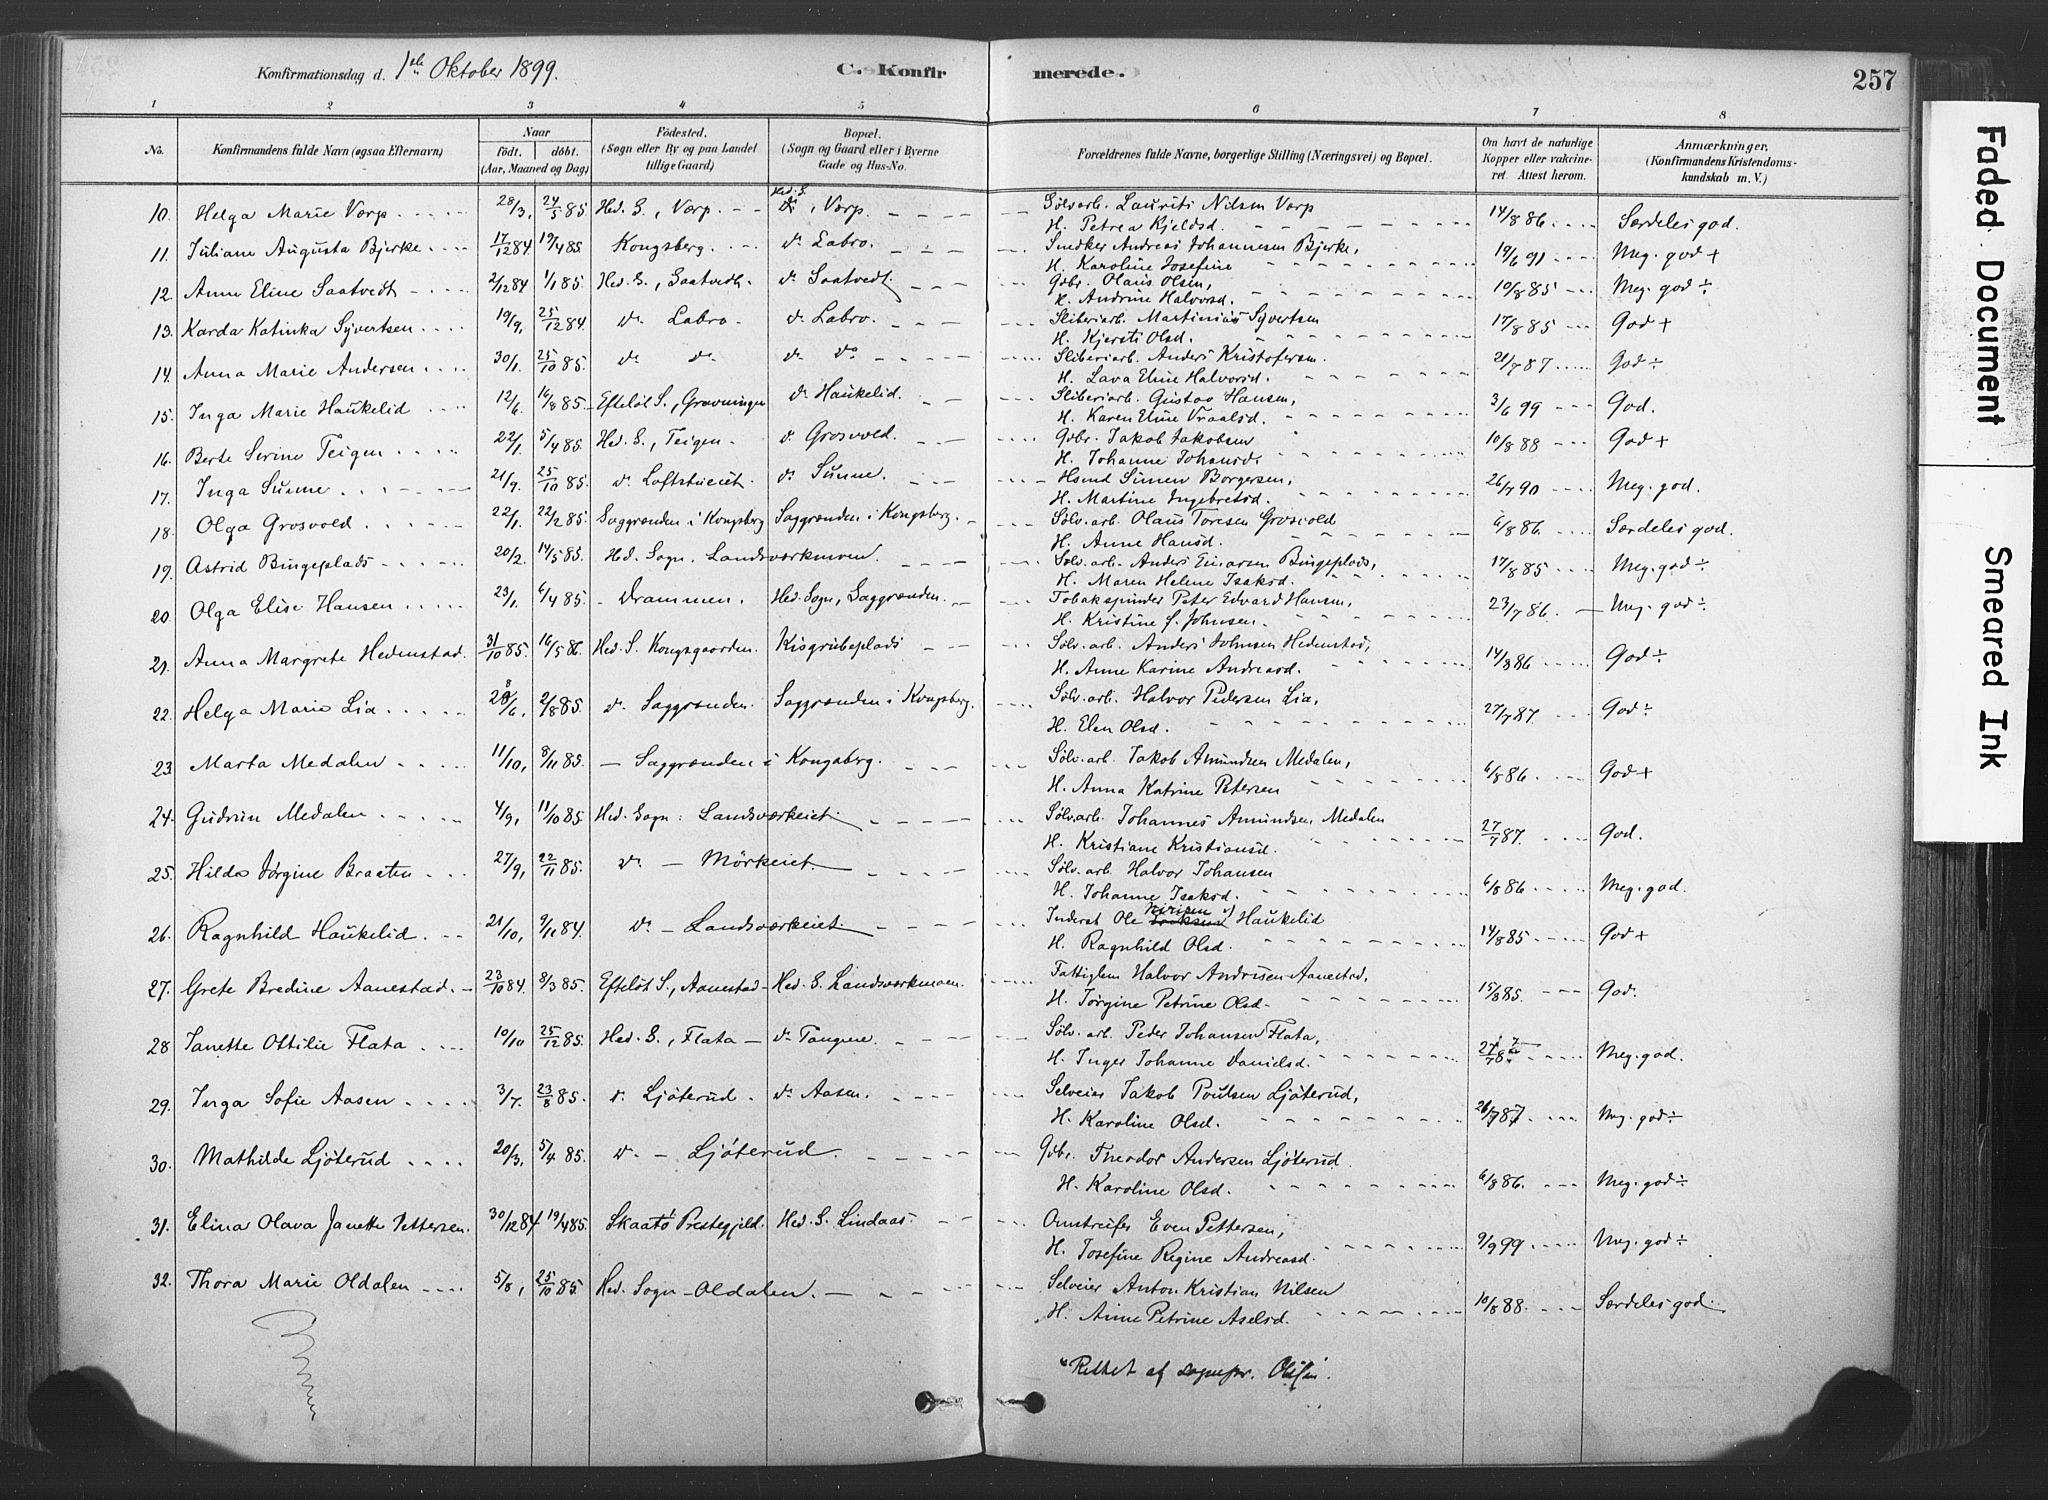 Konfirmationsdag d. 1ste Oktober 1899. C. Konfirmerede. 257
1 2 3 4 5 6 7 8
No. Konfirmandens fulde Navn (ogsaa Efternavn) Naar födt. döbt. (Aar, Maaned og Dag) Födested. (Sogn eller By og paa Landet tillige Gaard) Bopæl. (Sogn og Gaard eller i Byerne Gade og Hus-No. Forældrenes fulde Navne, borgerlige Stilling (Næringsvei) og Bopæl. Om havt de naturlige Kopper eller vakcineret. Attest herom. Anmærkninger. (Konfirmandens Kristendomskundskab m. V.)
10. Helga Marie Værp 28/3, 24/5 85. Hed. S., Værp. Hed. S., Værp. Sölvarb. Laurits Nilsen Værp
H. Petrea Kjeldsd. 14/8 86 Særdeles god.
11. Juliane Augusta Bjerke 17/12 84 19/4 85. Kongsberg. do Labro. Snedker Andreas Johannesen Bjerke,
H. Karoline Josefine 19/6 91 Meg. god +
12. Anne Eline Saatvedt 2/12 84 1/1 85. Hed. S., Saatvedt. do Saatvedt. Gbr. Olaus Olsen,
H. Andrine Halvorsd. 10/8 85 Meg. god ÷
13. Karda Katinka Syvertsen 19/9, 25/12 84. do Labro. do Labro. Sliberiarb. Martinius Syvertsen
H. Kjersti Olsd. 17/8 85 God +
14. Anna Marie Andersen 30/1. 25/10 85. do do do do Sliberiarb. Anders Kristofersen.
H. Lava Eline Halvorsd. 21/7 87 God ÷
15. Inga Marie Haukelid 12/6. 16/8 85. Efteløt S., Gravningen do Haukelid. Sliberiarb. Gustav Hansen,
H. Karen Eline Vraalsd. 3/6 99 God.
16. Berte Serine Teigen 22/1. 5/4 85. Hed. S., Teigen. do Grosvold. Gbr. Jakob Jakobsen
H. Johanne Johansd. 10/8 88 God +
17. Inga Sunne 21/9. 25/10 85. do Loftstueiet. do Sunne. Hsmd Simen Borgersen,
H. Martine Ingebretsd. 26/7 90 Meg. god.
18. Olga Grosvold 22/1. 22/2 85. Saggrænden i Kongsberg Saggrænden i Kongsberg. Sölv. arb. Olaus Toresen Grosvold
H. Anne Hansd. 6/8 86. Særdeles god.
19. Astrid Bingeplads 20/2. 14/5 85. Hed. Sogn. Landsværkmoen. Sölv. arb. Anders Einarsen Bingeplads,
H. Maren Helene Isaksd. 17/8 85 Meg. god ÷
20. Olga Elise Hansen 23/1. 6/4 85. Drammen. Hed. Sogn, Saggrænden. Tobakspinder Peter Edvard Hansen,
H. Kristine f. Johnsen. 23/7 86. Meg. god ÷
21. Anna Margrete Hedenstad. 31/10 85. 16/5 86. Hed. S. Kongsgaarden. Kisgrubeplads Sölv. arb. Anders Johnsen Hedenstad,
H. Anne Karine Andreasd. 14/8 86 God ÷
22. Helga Marie Lia 28/6, 2/8 85. do Saggrænden. Saggrænden i Kongsberg. Sölv. arb. Halvor Pedersen Lia,
H. Elen Olsd. 27/7 87 God ÷
23. Marta Medalen 11/10, 8/11 85. Saggrænden i Kongsberg. Sölv. arb. Jakob Amundsen Medalen,
H. Anna Katrine Petersen 6/8 86. God +
24. Gudrun Medalen 4/9, 11/10 85. Hed. Sogn: Landsværkeiet. Sölvarb. Johannes Amundsen Medalen
H. Kristiane Kristiansd. 27/7 87. God.
25. Hilda Jørgine Braaten 27/9, 22/11 85. do Mörkeiet Sölv. arb. Halvor Johansen
H. Johanne Isaksd. 6/8 86 Meg. god.
26. Ragnhild Haukelid. 21/10, 9/11 84. do Landsværkeiet. Inderst Ole Nirisen *) Haukelid
H. Ragnhild Olsd. 14/8 85 God +
27. Grete Bredine Aanestad. 23/10 84. 8/3 85. Efteløt S., Aanestad Hed. S. Landsværkmoen. Fattiglem Halvor Andersen Aanestad,
H. Jörgine Petrine Olsd. 15/8 85. God.
28 Janette Ottilie Flata 10/10 25/12 85. Hed. S., Flata do Tangene. Sölv. arb. Peder Johansen Flata,
H. Inger Johanne Danielsd. 27/7 87 Meg. god.
29. Inga Sofie Aasen 3/7. 23/8 85. do Ljöterud. do Aasen. Selveier Jakob Poulsen Ljöterud,
H. Karoline Olsd. 26/7 87 Meg. god ÷
30. Mathilde Ljöterud 20/3, 5/4 85. do Ljöterud. Gbr. Theodor Andersen Ljöterud.
H. Karoline Olsd. 6/8 86. Meg. god ÷
31. Elina Olava Janette Pettersen. 30/12 84 19/4 85. Skaatø Prestegjeld. Hed. S. Lindaas. Omstreifer Even Pettersen,
H. Josefine Regine Andreasd. 9/9 99 Meg. god ÷
32. Thora Marie Oldalen 5/8, 25/10 85. Hed. Sogn - Oldalen. Selveier Anton Kristian Nilsen
H. Anne Petrine Aselsd. 10/8 88. Særdeles god.
*Rettet af sognepr.
Faded Document
Smeared Ink